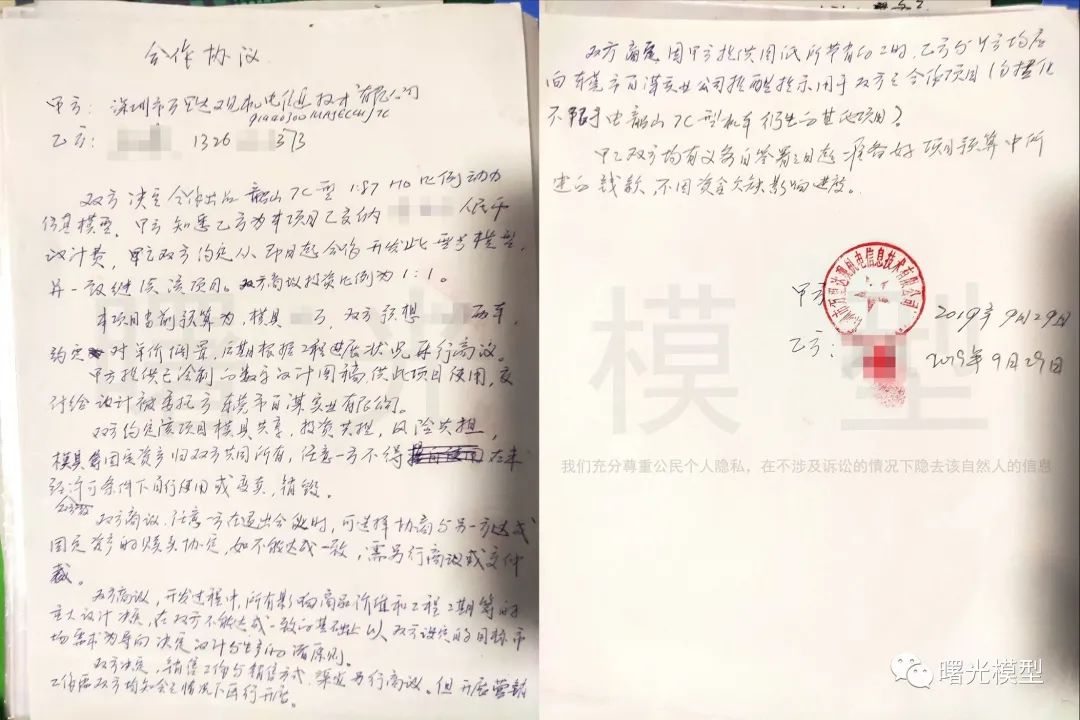 合作协议
甲方: 深圳市百里达观机电信息技术有限公司
乙方: 1326 573
双方决定合作出品 韶山7C型 1:87 HO 比例动力
仿真模型。甲方知悉乙方为本项目已交付 人民币
设计费,甲乙双方约定从即日起合作开发此型号模型,
并一致继续该项目。双方商议投资比例为1:1。
本项目当前预算为,模具 万,双方预想 每车,
约定对单价 ,后期根据工程进展状况再行商议。
甲方提供已绘制的数字设计图稿,供此项目使用,交
付给设计被委托方东莞市百谋实业有限公司。
双方约定该项目模具共享,投资共担,风险共担,
模具等固定资产归双方共同所有,任意一方不得 在未
经许可条件下自行使用或变卖,销毁。
双方商议,任意一方在退出合伙时,可选择协商与另一方达成
固定资产的 协定,如不能达成一致,需另行商议或交仲
裁。
双方商议,开发过程中,所有影响商品价值和工程工期等的
重大设计决策,在双方不能达成一致的基础上以双方设定的目标市
场需求为导向决定设计与生产的 原则。
双方决定,销售工作与销售方式, 另行商议。但开展营销
工作需双方均知会之情况下再行开展。
双方商定 因甲方提供图纸所节省的工时,乙方与甲方均应
向东莞市百谋实业公司提醒指示用于双方之合作项目(包括但
不限于由韶山7C型机车衍生的其他项目)
甲乙双方均有义务自签署之日起 准备好项目预算中所
述的钱款,不因资金欠缺影响进度。
甲方: 2019年9月29日
乙方: 2019年9月29日
市百里达观机电信息技术有限公司
模型
我们充分尊重公民个人隐私,在不涉及诉讼的情况下隐去该自然人的信息
曙光模型